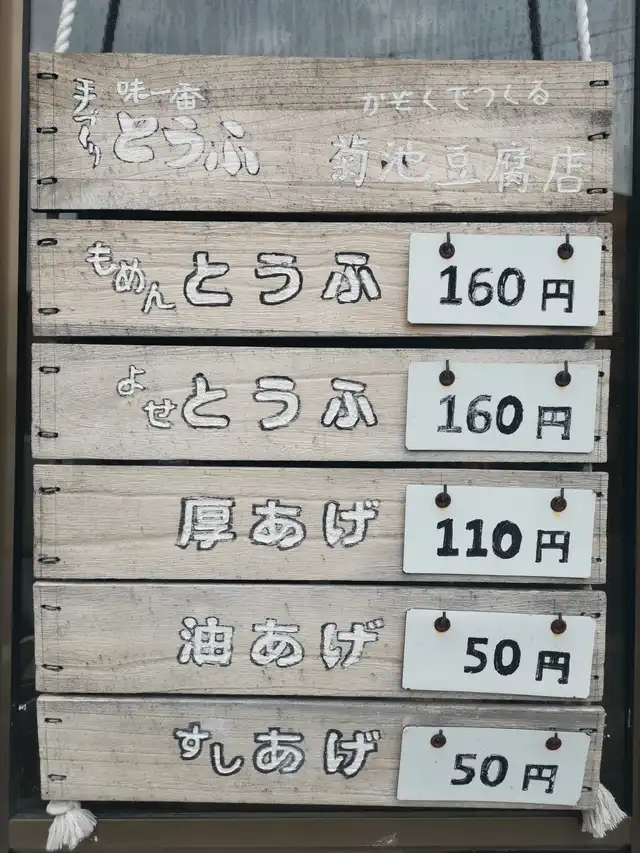 手づくり
味一番
とうふ
かぞくでつくる
菊池豆腐店
もめんとうふ 160円
よせとうふ 160円
厚あげ 110円
油あげ 50円
すしあげ 50円